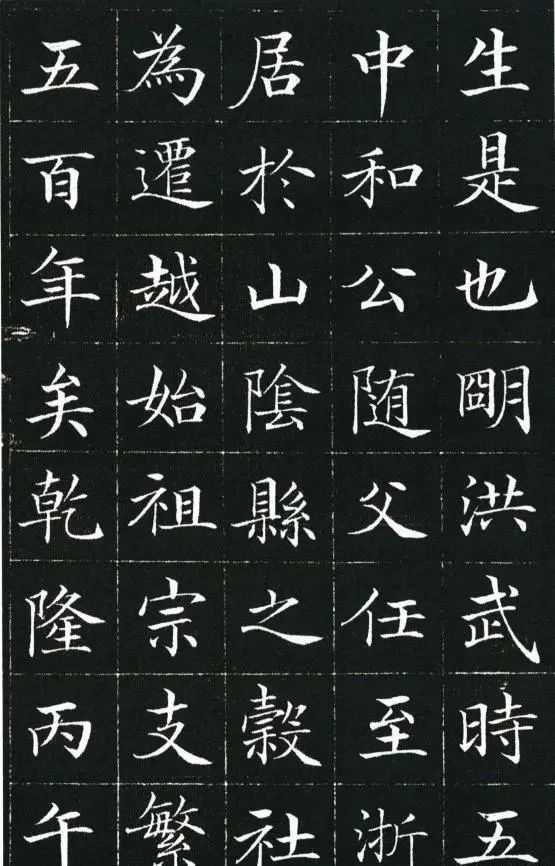 生是也朙洪武時五
中和公随父任至浙
居於山陰縣之穀社
為遷越始祖宗支繁
五百年矣乾隆丙午